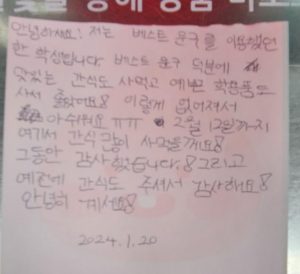 안녕하세요! 저는 베스트 문구를 이용했었던
한 학생입니다. 베스트 문구 덕분에
맛있는 간식도 사먹고 예쁜 학용품도
사서 좋았어요! 이렇게 없어져서
아쉬워요 ㅠㅠ 2월 12일까지
여기서 간식 많이 사먹을게요!
그동안 감사했습니다! 그리고
예전에 간식도 주셔서 감사해요!
안녕히 계세요!
2024.1.20